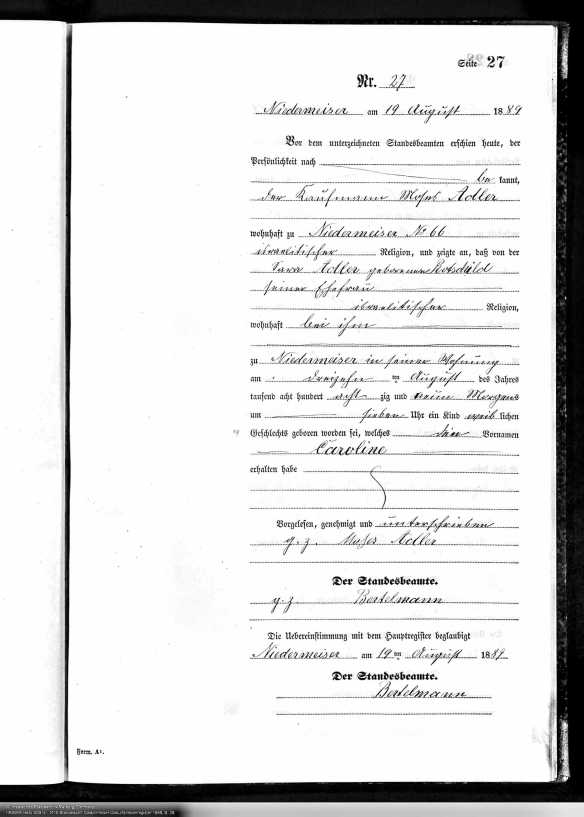 Seite 27
Nr. 27
Niedermeiser am 19 August 1889
Vor dem unterzeichneten Standesbeamten erschien heute, der
Persönlichkeit nach
be kannt,
der Kaufmann Moses Adler
wohnhaft zu Niedermeiser No 66
israelitischer Religion, und zeigte an, daß von der
Sara Adler geborenen Rotschild
seiner Ehefrau
israelitischer Religion,
wohnhaft bei ihm
zu Niedermeiser in seiner Wohnung
am dreizehn ten August des Jahres
tausend acht hundert acht zig und neun Morgens
um sieben Uhr ein Kind weib lichen
Geschlechts geboren worden sei, welches den Vornamen
Caroline
erhalten habe
Vorgelesen, genehmigt und unterschrieben
g. z. Moses Adler
Der Standesbeamte.
g. z. Bertelmann
Die Uebereinstimmung mit dem Hauptregister beglaubigt
Niedermeiser am 19 ten August 1889
Der Standesbeamte.
Bertelmann
Form. A1.